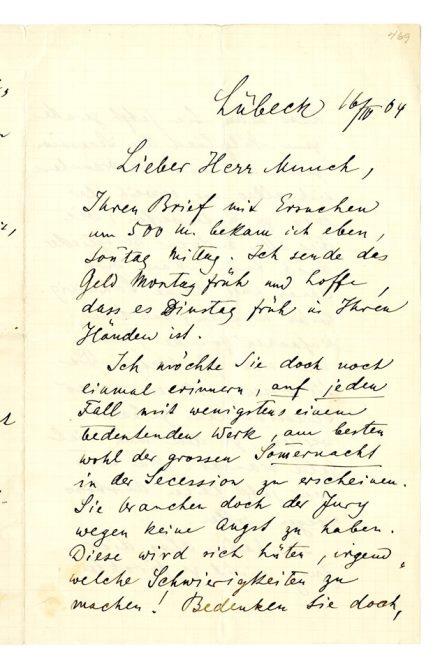 Lübeck 16/IV 04
Lieber Herr Munch,
Ihren Brief mit Ersuchen
um 500 M. bekam ich eben,
Sontag Mittag. Ich sende das
Geld Montag früh und hoffe,
dass es Dinstag früh in Ihren
Händen ist.
Ich möchte Sie doch noch
einmal erinnern, auf jeden
Fall mit wenigstens einem
bedeutenden Werk, am besten
wohl der grossen Somernacht
in der Secession zu erscheinen.
Sie brauchen doch der Jury
wegen keine Angst zu haben.
Diese wird sich hüten, irgend
welche Schwierigkeiten zu
machen! Bedenken Sie doch,